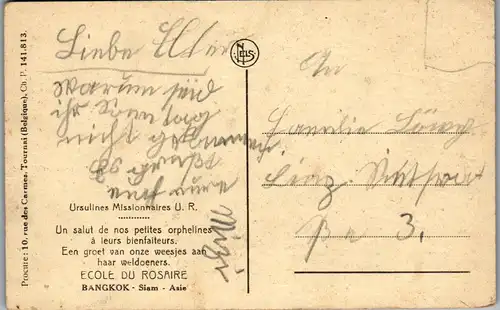 Liebe Eltern
Warum seid
ihr Sonntag
nicht gekommen.
Es grüßt
euch eure
An
Familie
Linz
3.
NELS
Ursulines Missionnaires U. R.
Un salut de nos petites orphelines
à leurs bienfaiteurs.
Een groet van onze weesjes aan
haar weldoeners.
ECOLE DU ROSAIRE
BANGKOK - Siam - Asie
Procure : 10, rue des Carmes, Tournai (Belgique), Ch. P. 141.813.